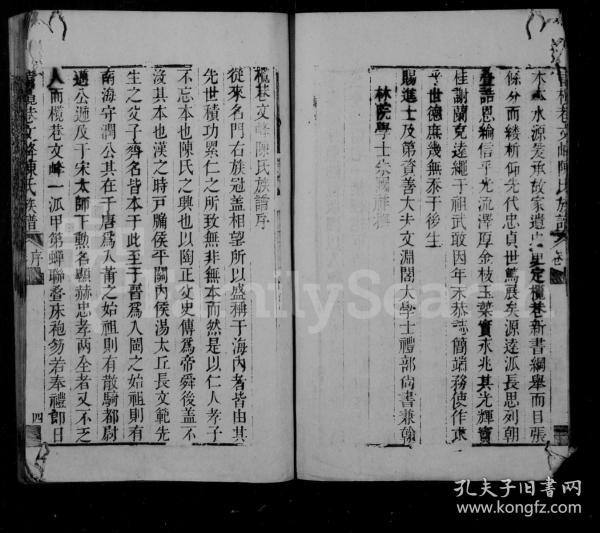 木本水源爰承故家遺 史更定欖巷新書綱舉而目張
條分而縷析仰先代忠貞世篤展矣源遠派長思列朝
疊誥恩綸信乎光流澤厚金枝玉葉實永兆其光輝寶
桂謝蘭克遠繩于祖武敢因年末恭誌簡端務使作求
乎世德庶幾無忝于後生
賜進士及第資善大夫文淵閣大學士禮部尚書兼翰
林院學士朱國祚撰
欖巷文峰陳氏族譜序
從來名門右族冠蓋相望所以盛稱于海內者皆由其
先世積功累仁之所致無非無本而然是以仁人孝子
不忘本也陳氏之興也以陶正女史傳為帝舜後蓋不
沒其本也漢之時戶牖侯平關內侯湯太丘長文範先
生之父子齊名皆本于此至于晉為入閩之始祖則有
南海守潤公其在于唐為入莆之始祖則有散騎都尉
邁公迺及于宋太師丁勲名顯赫忠孝兩全者又不乏
人而欖巷文峰一派甲第蟬聯叠床袍笏若奉禮郎日
欖巷文峰陳氏族譜 卷
欖巷文峰陳氏族譜 序 四
FamilySearch
孔夫子旧书网
www.kongfz.com